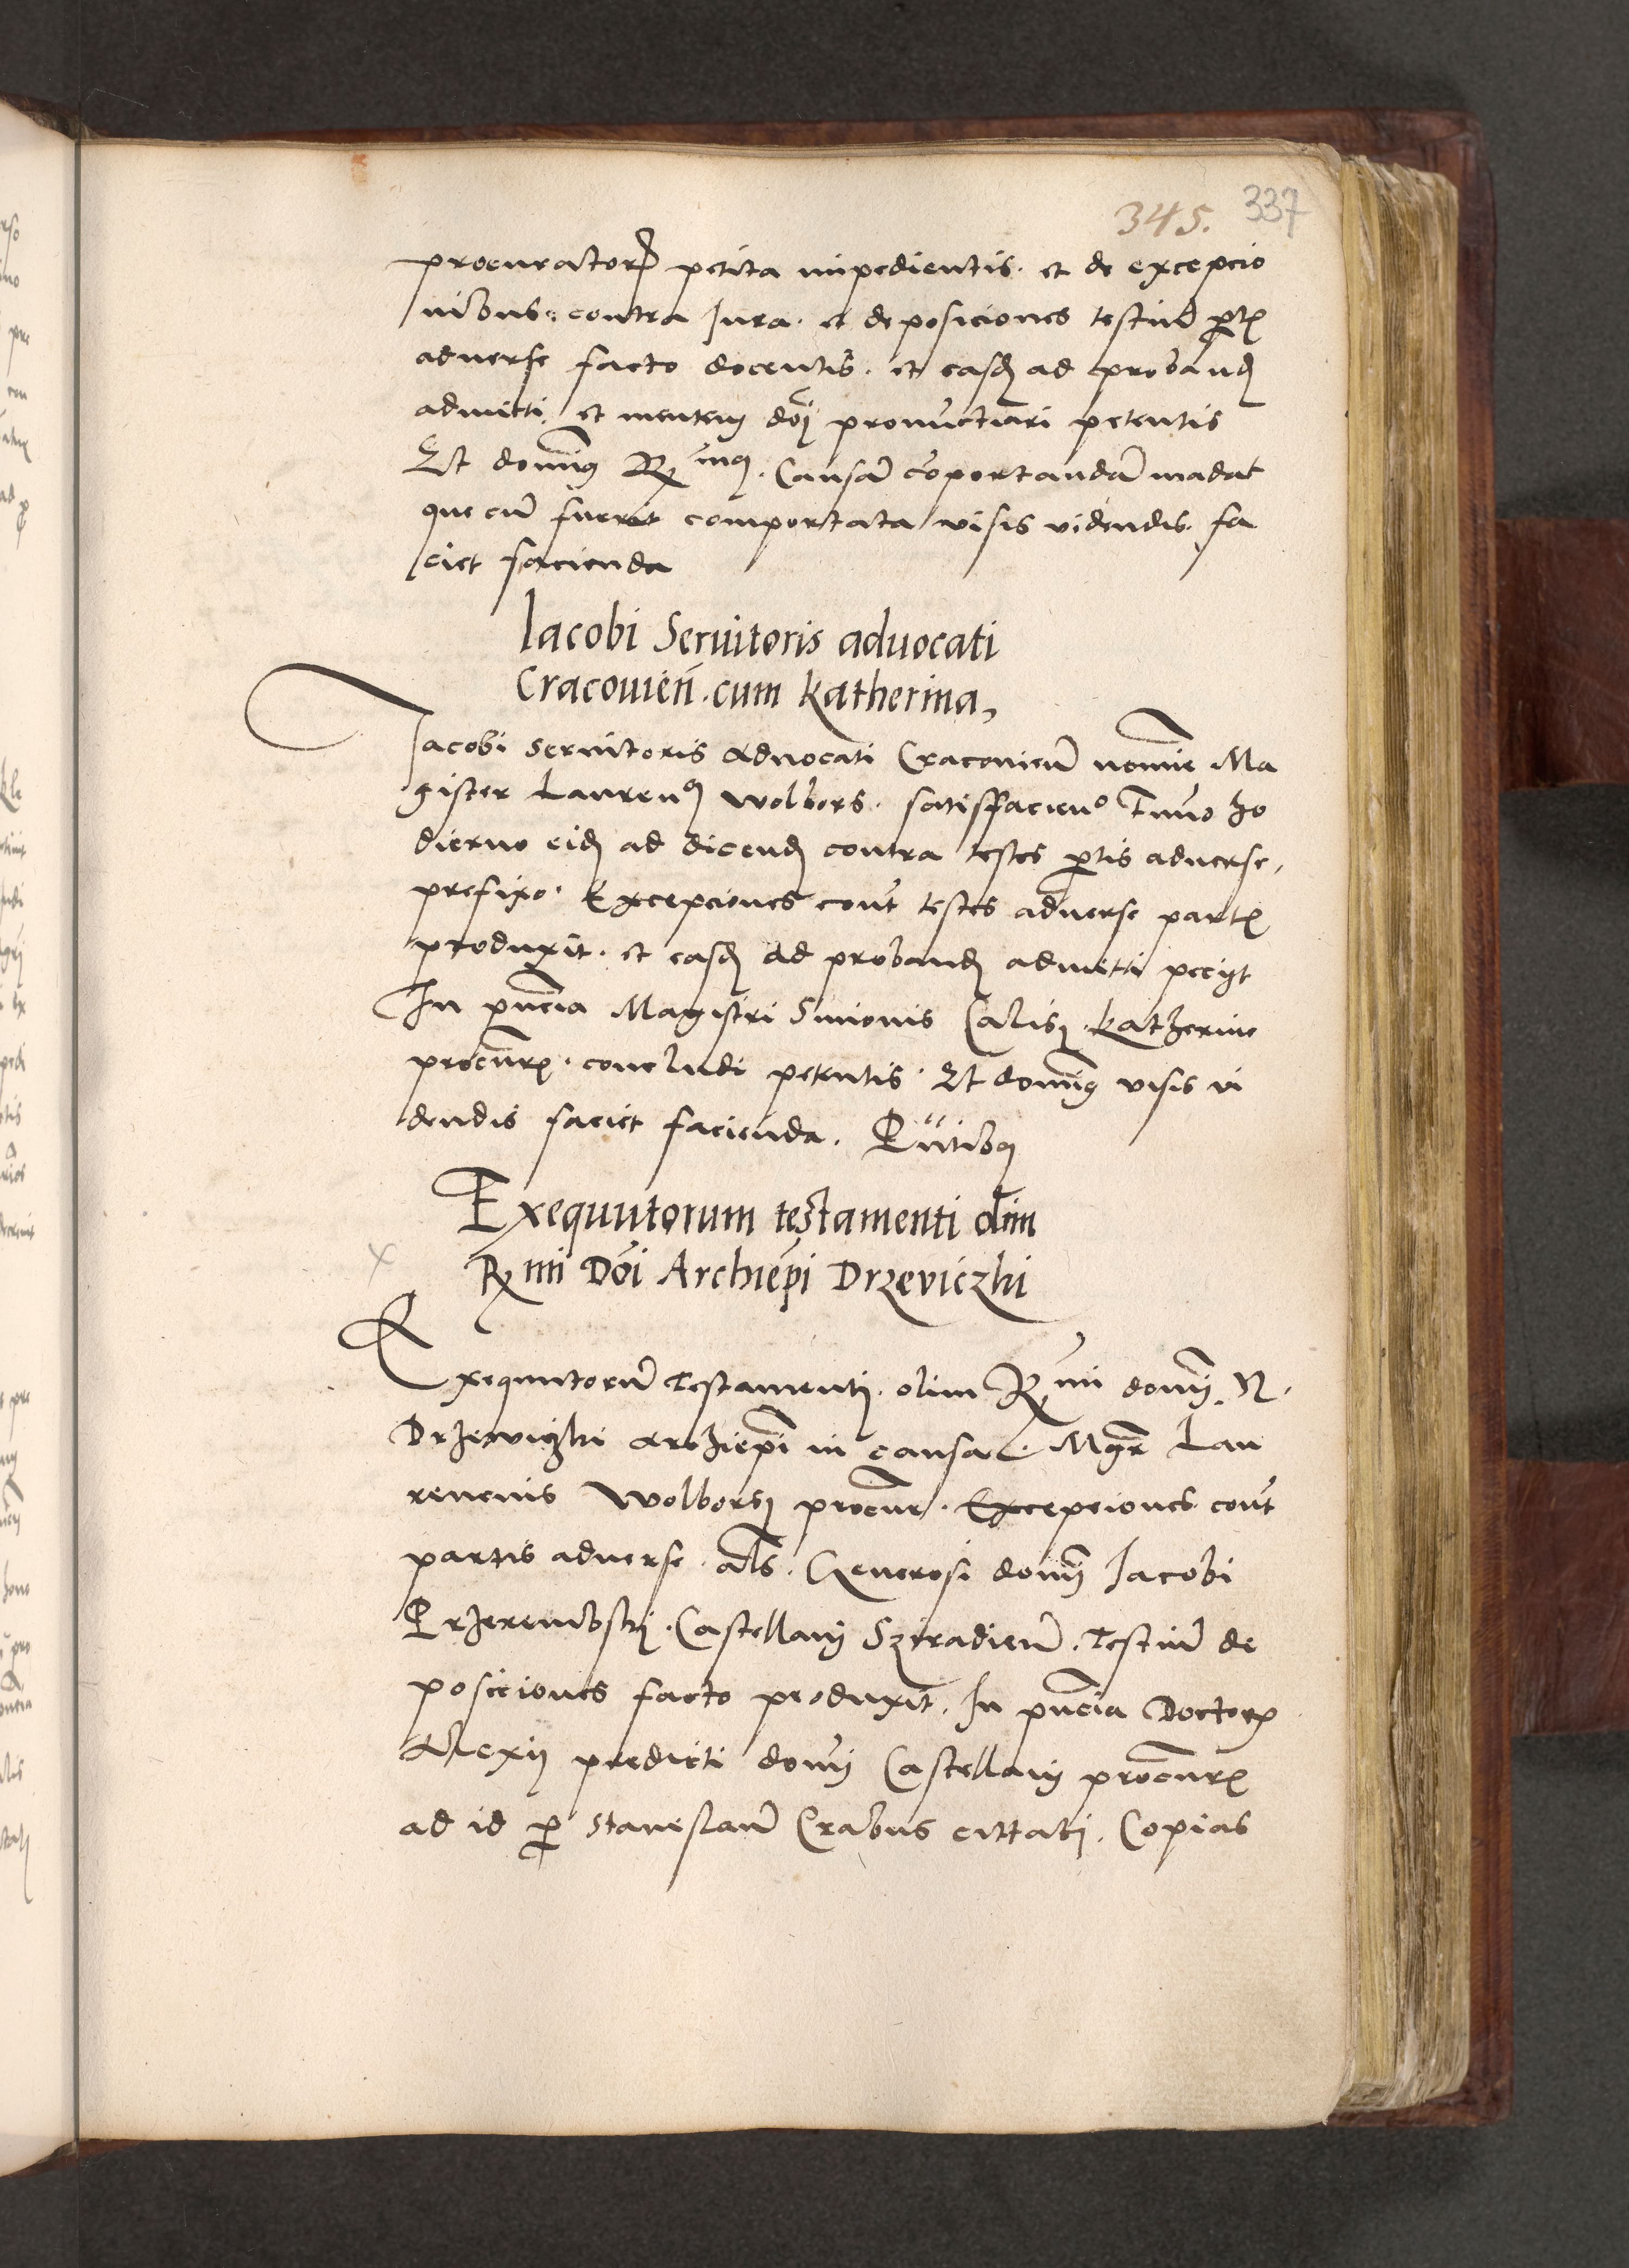 345. 337
procurator petita impedientis. et de excepcio
nibus contra Jura. et deposiciones testiu ptis
aduerse facto docentis. et easd ad proband
admitti. et mentem doi pronuctiari petentis
Et dominus R mus. Causa coportanda madat
que cu fuerit comportata visis videndis. fa
ciet facienda
Iacobi Seruitoris aduocati
Cracouien. cum Katherina,
Jacobi seruitoris aduocati Cracouien nomine Ma
gister Laurens Wolbors. satisfaciens Tmino ho
dierno eid ad dicend contra testes ptis aduerse.
prefixo. Excepciones cont testes aduerse partis
produxit. et easd ad proband admitti peciyt
In pncia Magistri Simonis Calis. Katherine
procuris. concludi petentis. Et dominus visis vi
dendis faciet facienda. Pntibus
Exequutorum testamenti olim
R mi Doi Archiepi Drzeviczhi
Exequutoru Testamenti. olim R mi domi. N.
Drzewiczhi archiepi in causa. Mgr Lau
rencius Wolbors procur. Excepciones cont
partis aduerse. als. Generosi domi Jacobi
Przerembski. Castellani Sziradien. Testiu de
posiciones facto produxit. In pncia Doctoris
Alexii predicti domi Castellani procuris
ad id p Staneslau Crabus cittati. Copias